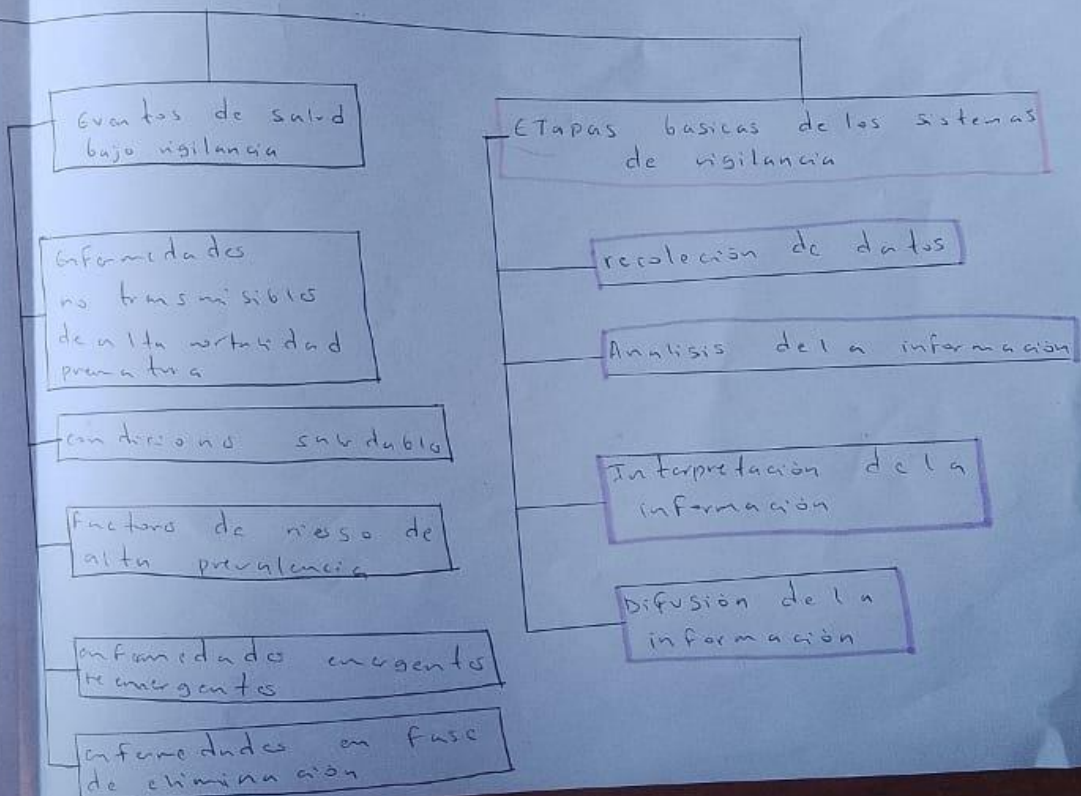 Eventos de salud
bajo vigilancia
Enfermedades
no transmisibles
de alta mortalidad
prematura
condiciones saludables
Factores de riesgo de
alta prevalencia
enfermedades emergentes
reemergentes
enfermedades en fase
de eliminación
ETapas basicas de los sistemas
de vigilancia
recoleción de datos
Analisis de la información
Interpretación de la
información
Difusión de la
información